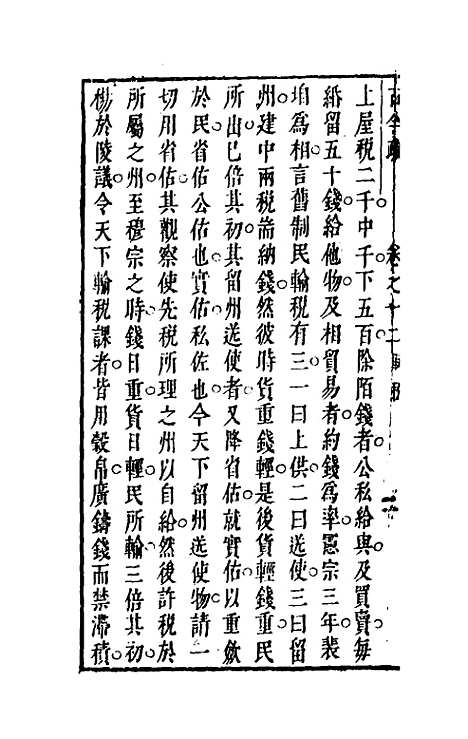 上屋税二千中千下五百除陌錢者公私給與及買賣每
緡留五十錢給他物及相貿易者約錢爲率憲宗三年裴
垍爲相言舊制民輸税有三一曰上供二曰送使三曰留
州建中兩税嵛納錢然彼時貨重錢輕是後貨輕錢重民
所出已倍其初其留州送使者又降省估就實估以重斂
於民省估公估也實估私佐也今天下留州送使物請一
切用省估其觀察使先税所理之州以自給然後許税於
所屬之州至穆宗之時錢日重貨日輕民所輸三倍其初
楊於陵議令天下輸税課者皆用穀帛廣鑄錢而禁滯積
卷之十二